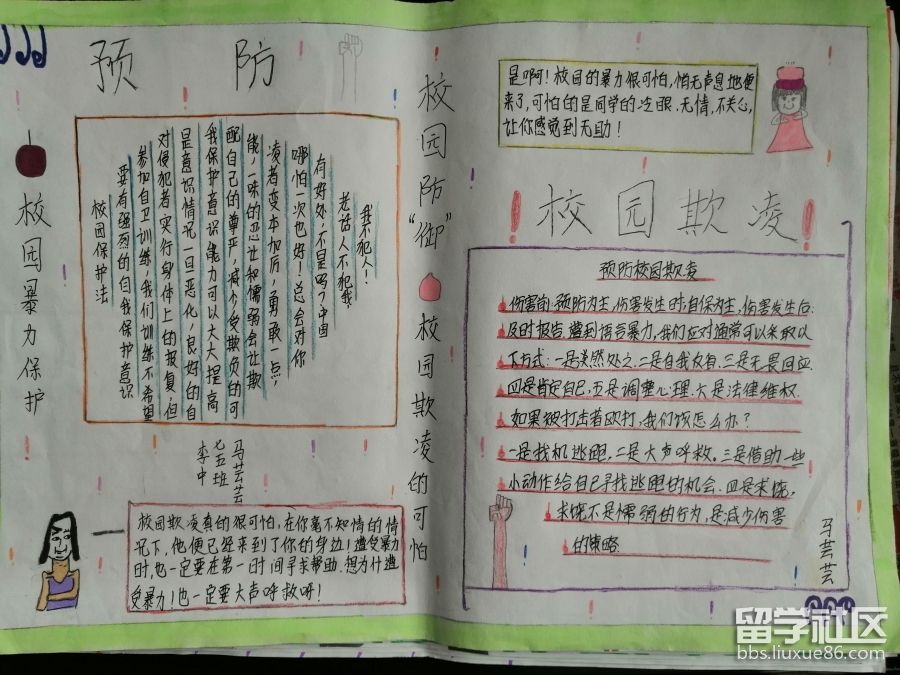 预 防
校园暴力保护
校园保护法
要有强烈的自我保护意识
参加自卫训练，我们训练不希望
对侵犯者实行身体上的报复，但
是意识情况一旦恶化，良好的自
我保护意识能力可以大大提高
配自己的尊严，减少受欺负的可
能，一味的忍让和懦弱会让欺
凌者变本加厉，勇敢一点，
哪怕一次也好！总会对你
有好处，不是吗？中国
老话人不犯我，
我不犯人！
李中
七五班
马芸芸
校园欺凌真的很可怕，在你毫不知情的情
况下，他便已经来到了你的身边！遭受暴力
时，也一定要在第一时间寻我帮助．想为什遭
受暴力！也一定要大声呼救呀！
校园防“御”
校园欺凌的可怕
是啊！校园的暴力很可怕，怕无声息地便
来了，可怕的是同学的冷眼．无情，不关心，
让你感觉到无助！
！校园欺凌！
预防校园欺凌
伤害前：预防为主，伤害发生时：自保为主，伤害发生后：
及时报告 遭到语言暴力，我们应对通常可以采取以
下方式：一是淡然处之．二是自我反省．三是无畏回应．
四是肯定自己．五是调整心理．六是法律维权．
如果被打击者殴打，我们该怎么办？
一是找机逃跑．二是大声呼救．三是借助一些
小动作给自己寻找逃跑的机会．四是求饶，
求饶不是懦弱的行为，是减少伤害
的策略．
马芸芸
留学社区
bbs.liuxue86.com